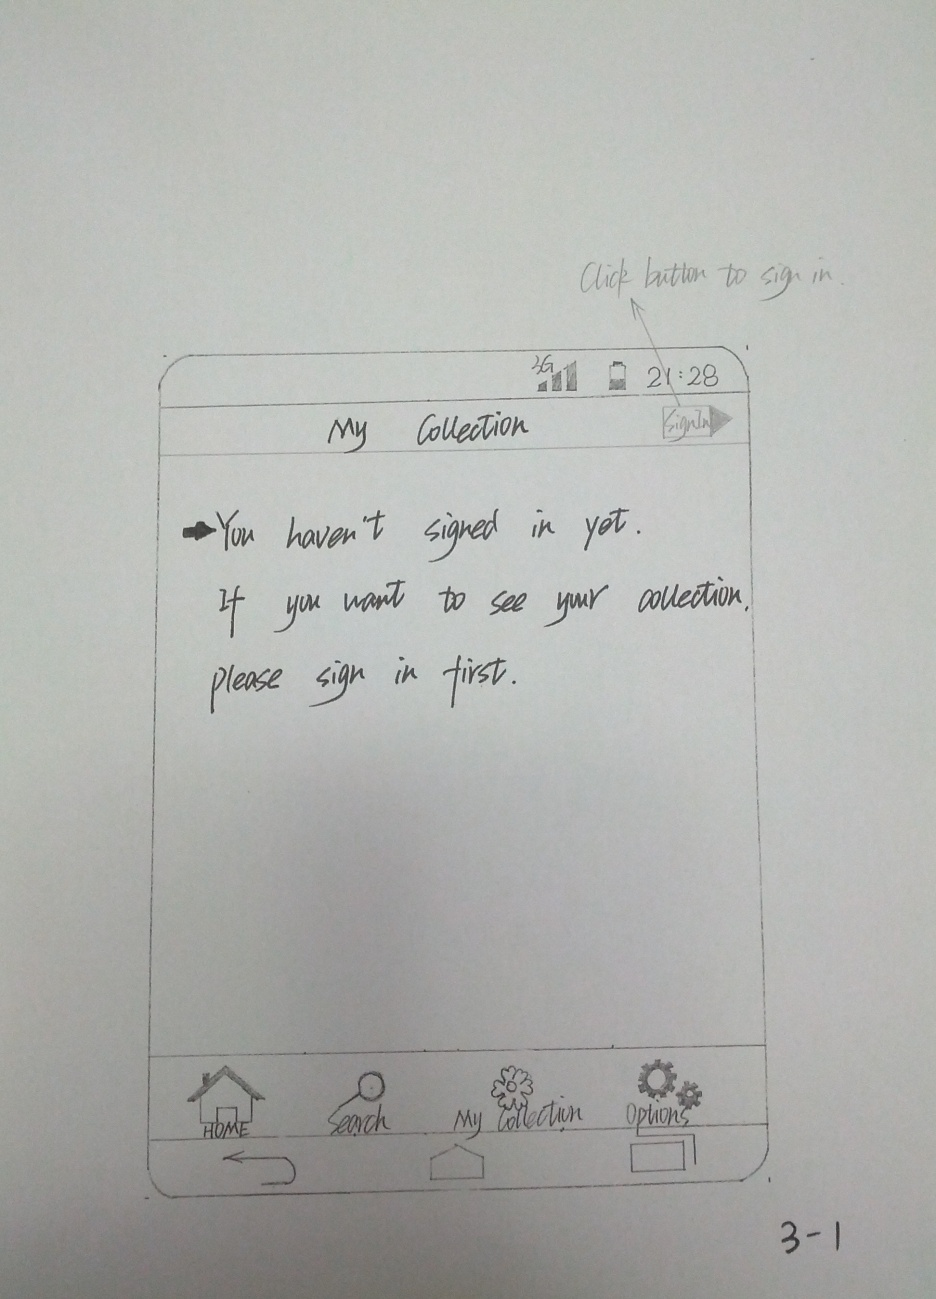 Click button to sign in.
3G 21:28
My Collection SignIn
You haven't signed in yet.
If you want to see your collection,
please sign in first.
HOME Search My Collection Options
3-1